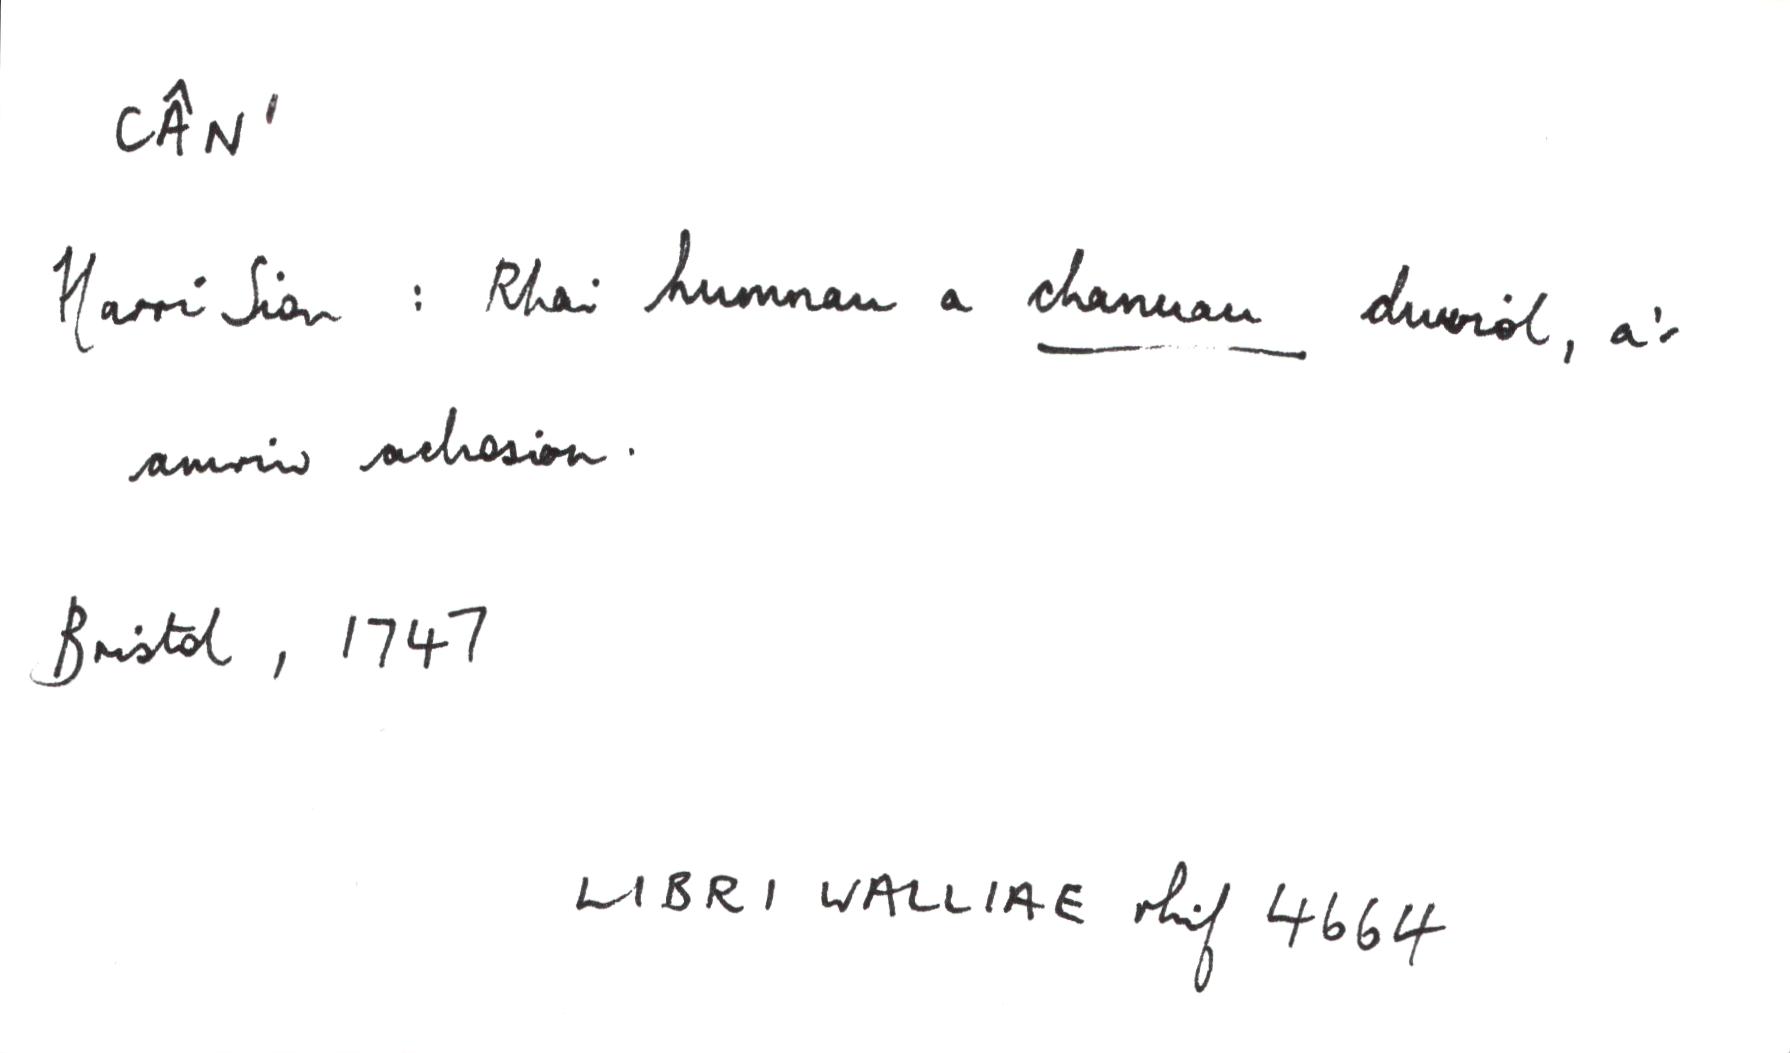 CÂN'
Harri Siôn : Rhai humnau a chanuau duwiól, a'r
amriw achosion.
Bristol, 1747
LIBRI WALLIAE rhif 4664